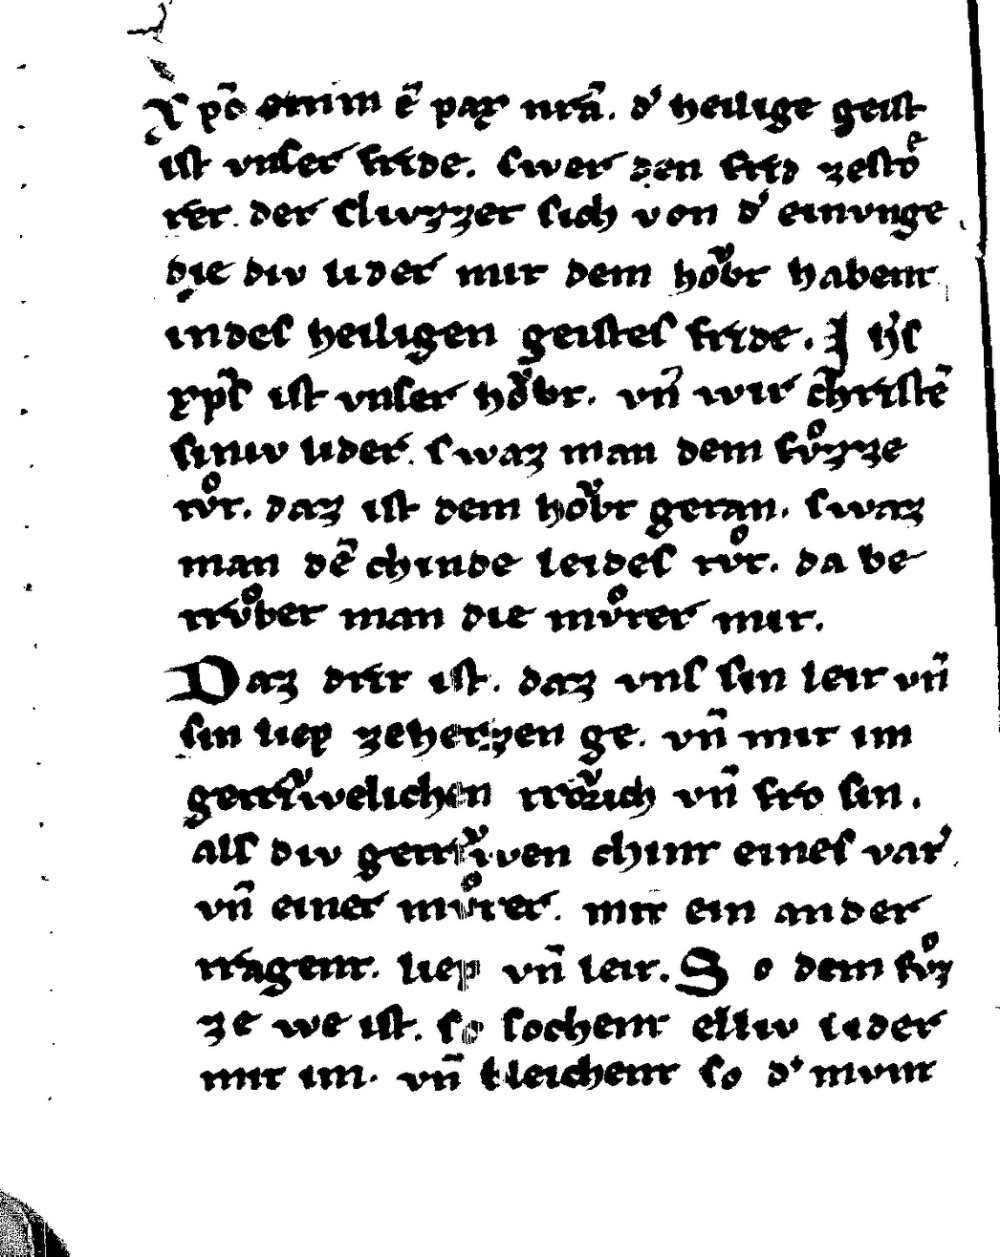 Xpō enim ē pax nrā. d' heilige geist
ist vnser fride. swer den frid zestoͤ
ret. der sliuzzet sich von d' einunge
die diu lider mit dem hoͮbt habent
indes heiligen geistes fride. Jhs
xp̄s ist vnser hoͮbt. vn̄ wir christē
siniv lider. swaz man dem fvͦzze
tvͦt. daz ist dem hoͮbt getan. swaz
man dē chinde leides tvͦt. da be
trvͦbet man die mvͦter mit.
Daz drit ist. daz vns sin leit vn̄
sin liep zeherzen ge. vn̄ mit im
getriͮwelichen troͮrich vn̄ fro sin.
als div getriͮwen chint eines vat'
vn̄ einer mvͦter. mit ein ander
tragent. liep vn̄ leit. So dem fvͦz
ze we ist. so sochent elliv lider
mit im. vn̄ sleichent so d' mvnt